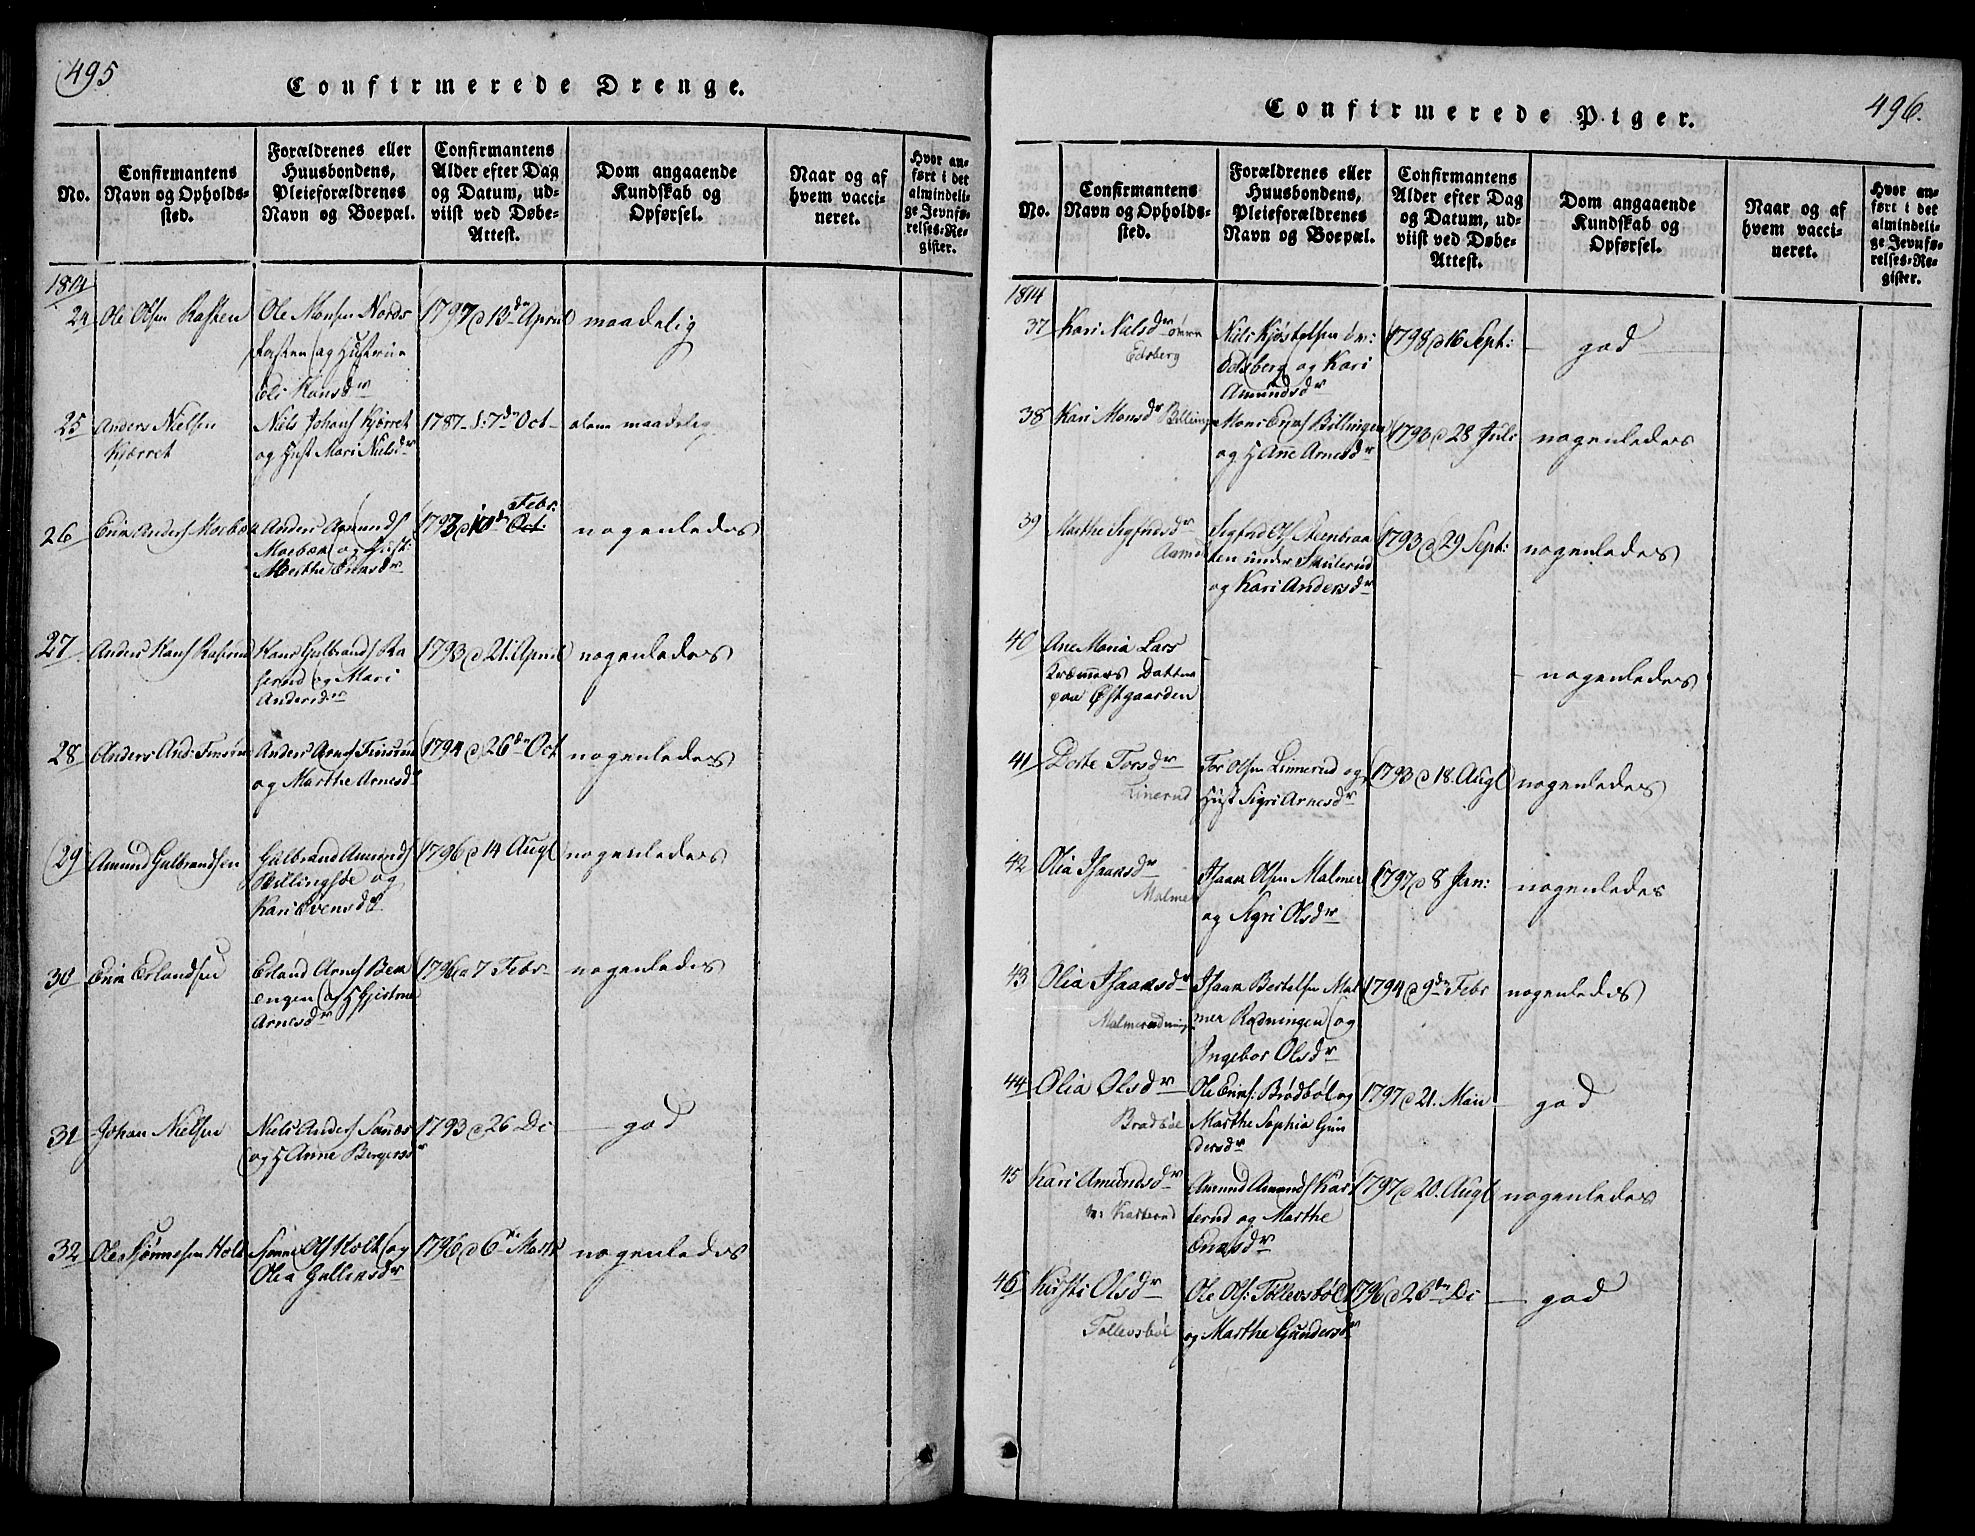 495
Confirmerede Drenge.
No.
Confirmantens
Navn og Opholds-
sted.
Forældrenes eller
Huusbondens,
Pleieforældrenes
Navn og Boepæl.
Confirmantens
Alder efter Dag
og Datum, ud-
viist ved Døbe-
Attest.
Dom angaaende
Kundskab og
Opførsel.
Naar og af
hvem vacci-
neret.
Hvor an-
ført i det
almindeli-
ge Jevnfø-
relses-Re-
gister.
1814
24 Ole Olsen Kasten
Ole Monsen Nordr
Kasten og Hustrue
Eli Hansdr
1797 d 13de April
maadelig
25 Anders Nielsen
Kjørret
Niels Johans Kjørret
og Hust Mari Nielsdr
1787 d: 7de Oct
maadelig
26 Erik Anders Moebæk
Anders Amunds
Moebæk og Hust:
Marthe Eriksdr
1793 d 10de Oct: Febr:
nogenledes
27 Anders Hans Raserud
Hans Gulbrands Ra
serud og Mari
Andersdr
1793 d 21. April
nogenledes
28 Anders And:
Anders Arnes
og Marthe Arnesdr
1794 d 26de Oct
nogenledes
29 Amund Gulbrandsen
Gulbrand Amunds
Billingsøe og
Kari Evensdr
1796 d 14 Augt
nogenledes
30 Erik Erlandsen
Erland Arnes Bek
engen og H Gjertrue
Arnesdr
1796 d 7 Febr
nogenledes
31 Johan Nielsen
Niels Anders
og H Anne Bergersdr
1793 d 26 De
god
32 Ole Sjønnesen Holt
Sjønne Ols Holt og
Olea Gulliksdr
1796 d 6te Marts
nogenledes
496.
Confirmerede Piger.
No.
Confirmantens
Navn og Opholds-
sted.
Forældrenes eller
Huusbondens,
Pleieforældrenes
Navn og Boepæl.
Confirmantens
Alder efter Dag
og Datum, ud-
viist ved Døbe-
Attest.
Dom angaaende
Kundskab og
Opførsel.
Naar og af
hvem vacci-
neret.
Hvor an-
ført i det
almindeli-
ge Jevnfø-
relses-Re-
gister.
1814
37 Kari Nielsdr øvre
Edsberg
Niels Kjøstelsen øv:
Edsberg og Kari
Amundsdr
1798 d 16 Sept:
god
38 Kari Monsdr Billingen
Mons Eriks Billingen
og H Ane Arnesdr
1793 d 28 Juli
nogenledes
39 Marthe Sigfridsdr
Sigfrid Ols Steenbraa
ten under Skulerud
og Kari Andersdr
1793 d 29 Sept:
nogenledes
40 Ane Maria Lars
Kræmmers Datter
paa Østgaarden
nogenledes
41 Dorte Torsdr
Linerud
Tor Olsen Linnerud og
Hust Sigri Arnesdr
1793 d 18. Augt
nogenledes
42 Olia Isaaksdr
Malmer
Isaak Olsen Malmer
og Sigri Olsdr
1797 d 8 Jan:
nogenledes
43 Olia Isaaksdr
Malmerødning
Isaak Bertelsen Mal
mer Rødningen og
Ingebor Olsdr
1794 d 9de Febr
nogenledes
44 Olia Olsdr
Brødbøl
Ole Eriks: Brødbøl og
Marthe Sophia Gun
dersdr
1797 d 21. Maii
god
45 Kari Amundsdr
Kasterud
Amund Amunds Kas
terud og Marthe
Eriksdr
1797 d 20. Augt
nogenledes
46 Kirsti Olsdr
Tollevsbøl
Ole Ols: Tollevsbøl
og Marthe Gundersdr
1796 d 26de De
god